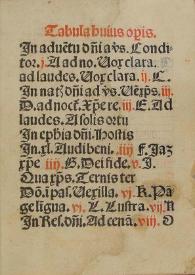 Tabula huius opis.
In aduētu dñi a vs. Condi
tor. j. A ad no. Uox clara.
ad laudes. Uox clara. ij. C.
In natꝭ dñi ad vs. Uexp̄s. iij
D. ad noct. Xp̄e re. iij. E. Ad
laudes. A solis ortu
In ephia dñi. Hostis
In xl. Audi beni. iiij F. Jaz
xp̄e iiij G. Dei fide. v. J.
Qua xp̄s. Ternis ter
Dō. i pal. Uexilla. vj. K. Pā
ge ligua. vj. L. Lustra. vij N
In Res. dñi. Ad cenā. viij